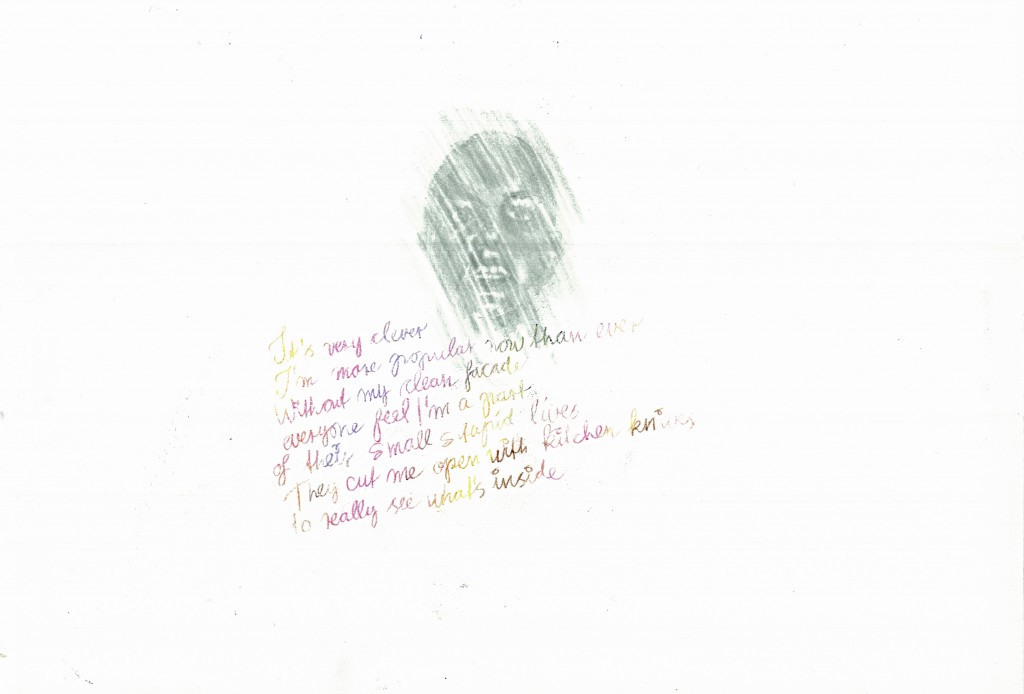 It's very clever
I'm more popular now than ever
Without my clean facade
everyone feel I'm a part
of their small stupid lives
They cut me open with kitchen knives
to really see what's inside